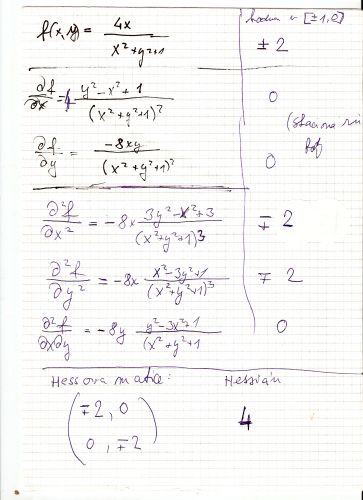 f(x,y) = 4x / (x²+y²+1) hodnota v [±1,0] ±2
∂f/∂x = 4 (y²-x²+1) / (x²+y²+1)² 0
(stacionární
∂f/∂y = -8xy / (x²+y²+1)² 0
bod)
∂²f/∂x² = -8x (3y²-x²+3) / (x²+y²+1)³ ∓2
∂²f/∂y² = -8x (x²-3y²+1) / (x²+y²+1)³ ∓2
∂²f/∂x∂y = -8y (y²-3x²+1) / (x²+y²+1)³ 0
Hessova matice: Hessián
(∓2, 0
0, ∓2) 4